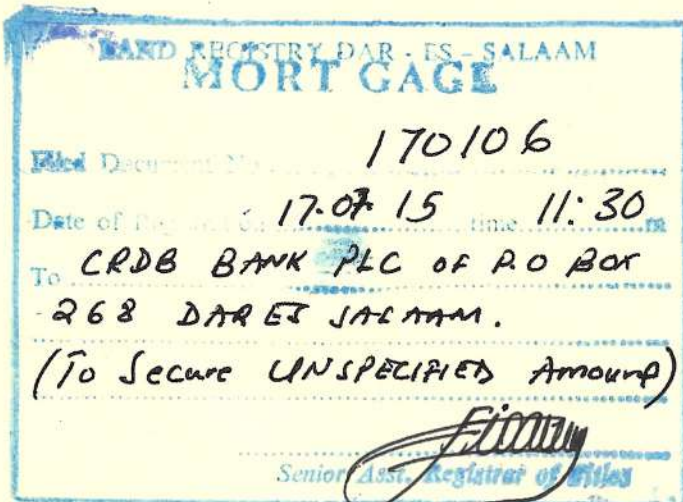 LAND REGISTRY DAR - ES - SALAAM
MORTGAGE
Filed Document No 170106
Date of 17.07.15 time 11:30 m
To CRDB BANK PLC OF P.O BOX
268 DAR ES SALAAM.
(To Secure UNSPECIFIED Amount)
Senior Asst. Registrar of Titles